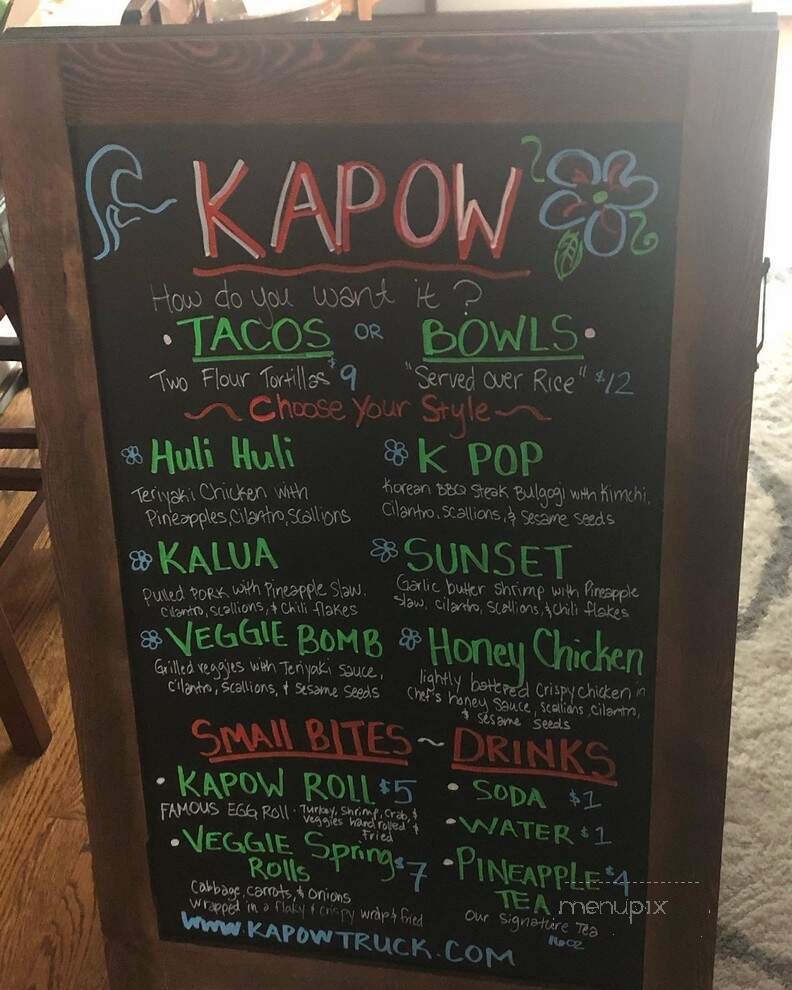 KAPOW
How do you want it?
• TACOS OR BOWLS •
Two Flour Tortillas $9
"Served over Rice" $12
~ Choose Your Style ~
Huli Huli
Teriyaki Chicken with
Pineapples, Cilantro, Scallions
K POP
Korean BBQ Steak Bulgogi with Kimchi,
Cilantro, scallions, & sesame seeds
KALUA
Pulled PORK with Pineapple Slaw.
cilantro, scallions, & Chili flakes
SUNSET
Garlic butter shrimp with Pineapple
slaw, cilantro, Scallions, & chili flakes
VEGGIE BOMB
Grilled veggies with Teriyaki sauce,
cilantro, scallions, & sesame seeds
Honey Chicken
lightly battered crispy chicken in
Chef's honey sauce, scallions, cilantro,
& sesame seeds
SMAll BITES ~ DRINKS
• KAPOW ROLL $5
FAMOUS EGG ROLL - Turkey, Shrimp, Crab, &
veggies hand rolled &
fried
• VEGGIE Spring $7
Rolls
Cabbage, carrots, & onions
wrapped in a flaky & crispy wrap & fried
• SODA $1
• WATER $1
• PINEAPPLE $4
TEA
our signature Tea
16oz
www.KAPOWTRUCK.COM
menupix